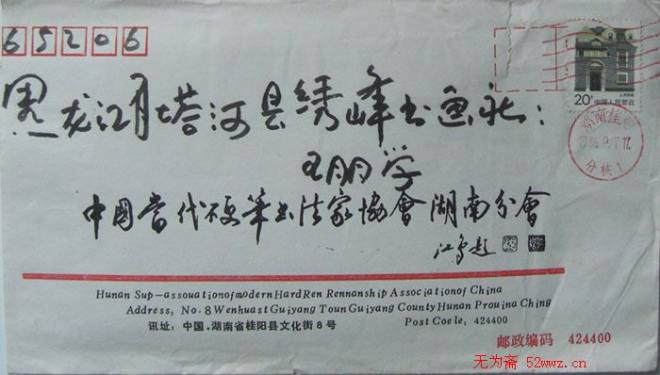 65206
20分
中国人民邮政
黑龙江省塔河县绣峰书画社:
王朋学
中國當代硬筆书法家協會湖南分會
Hunan Sup-assouationofmodernHardRen Rennanship Associationof China
Address, No. 8 Wenhuast Guiyang Toun Guiyang County Hunan Prouina Ching
讯址: 中国.湖南省桂阳县文化街8号 Post Coele, 424400
邮政编码 424400
无为斋 52wwz.cn